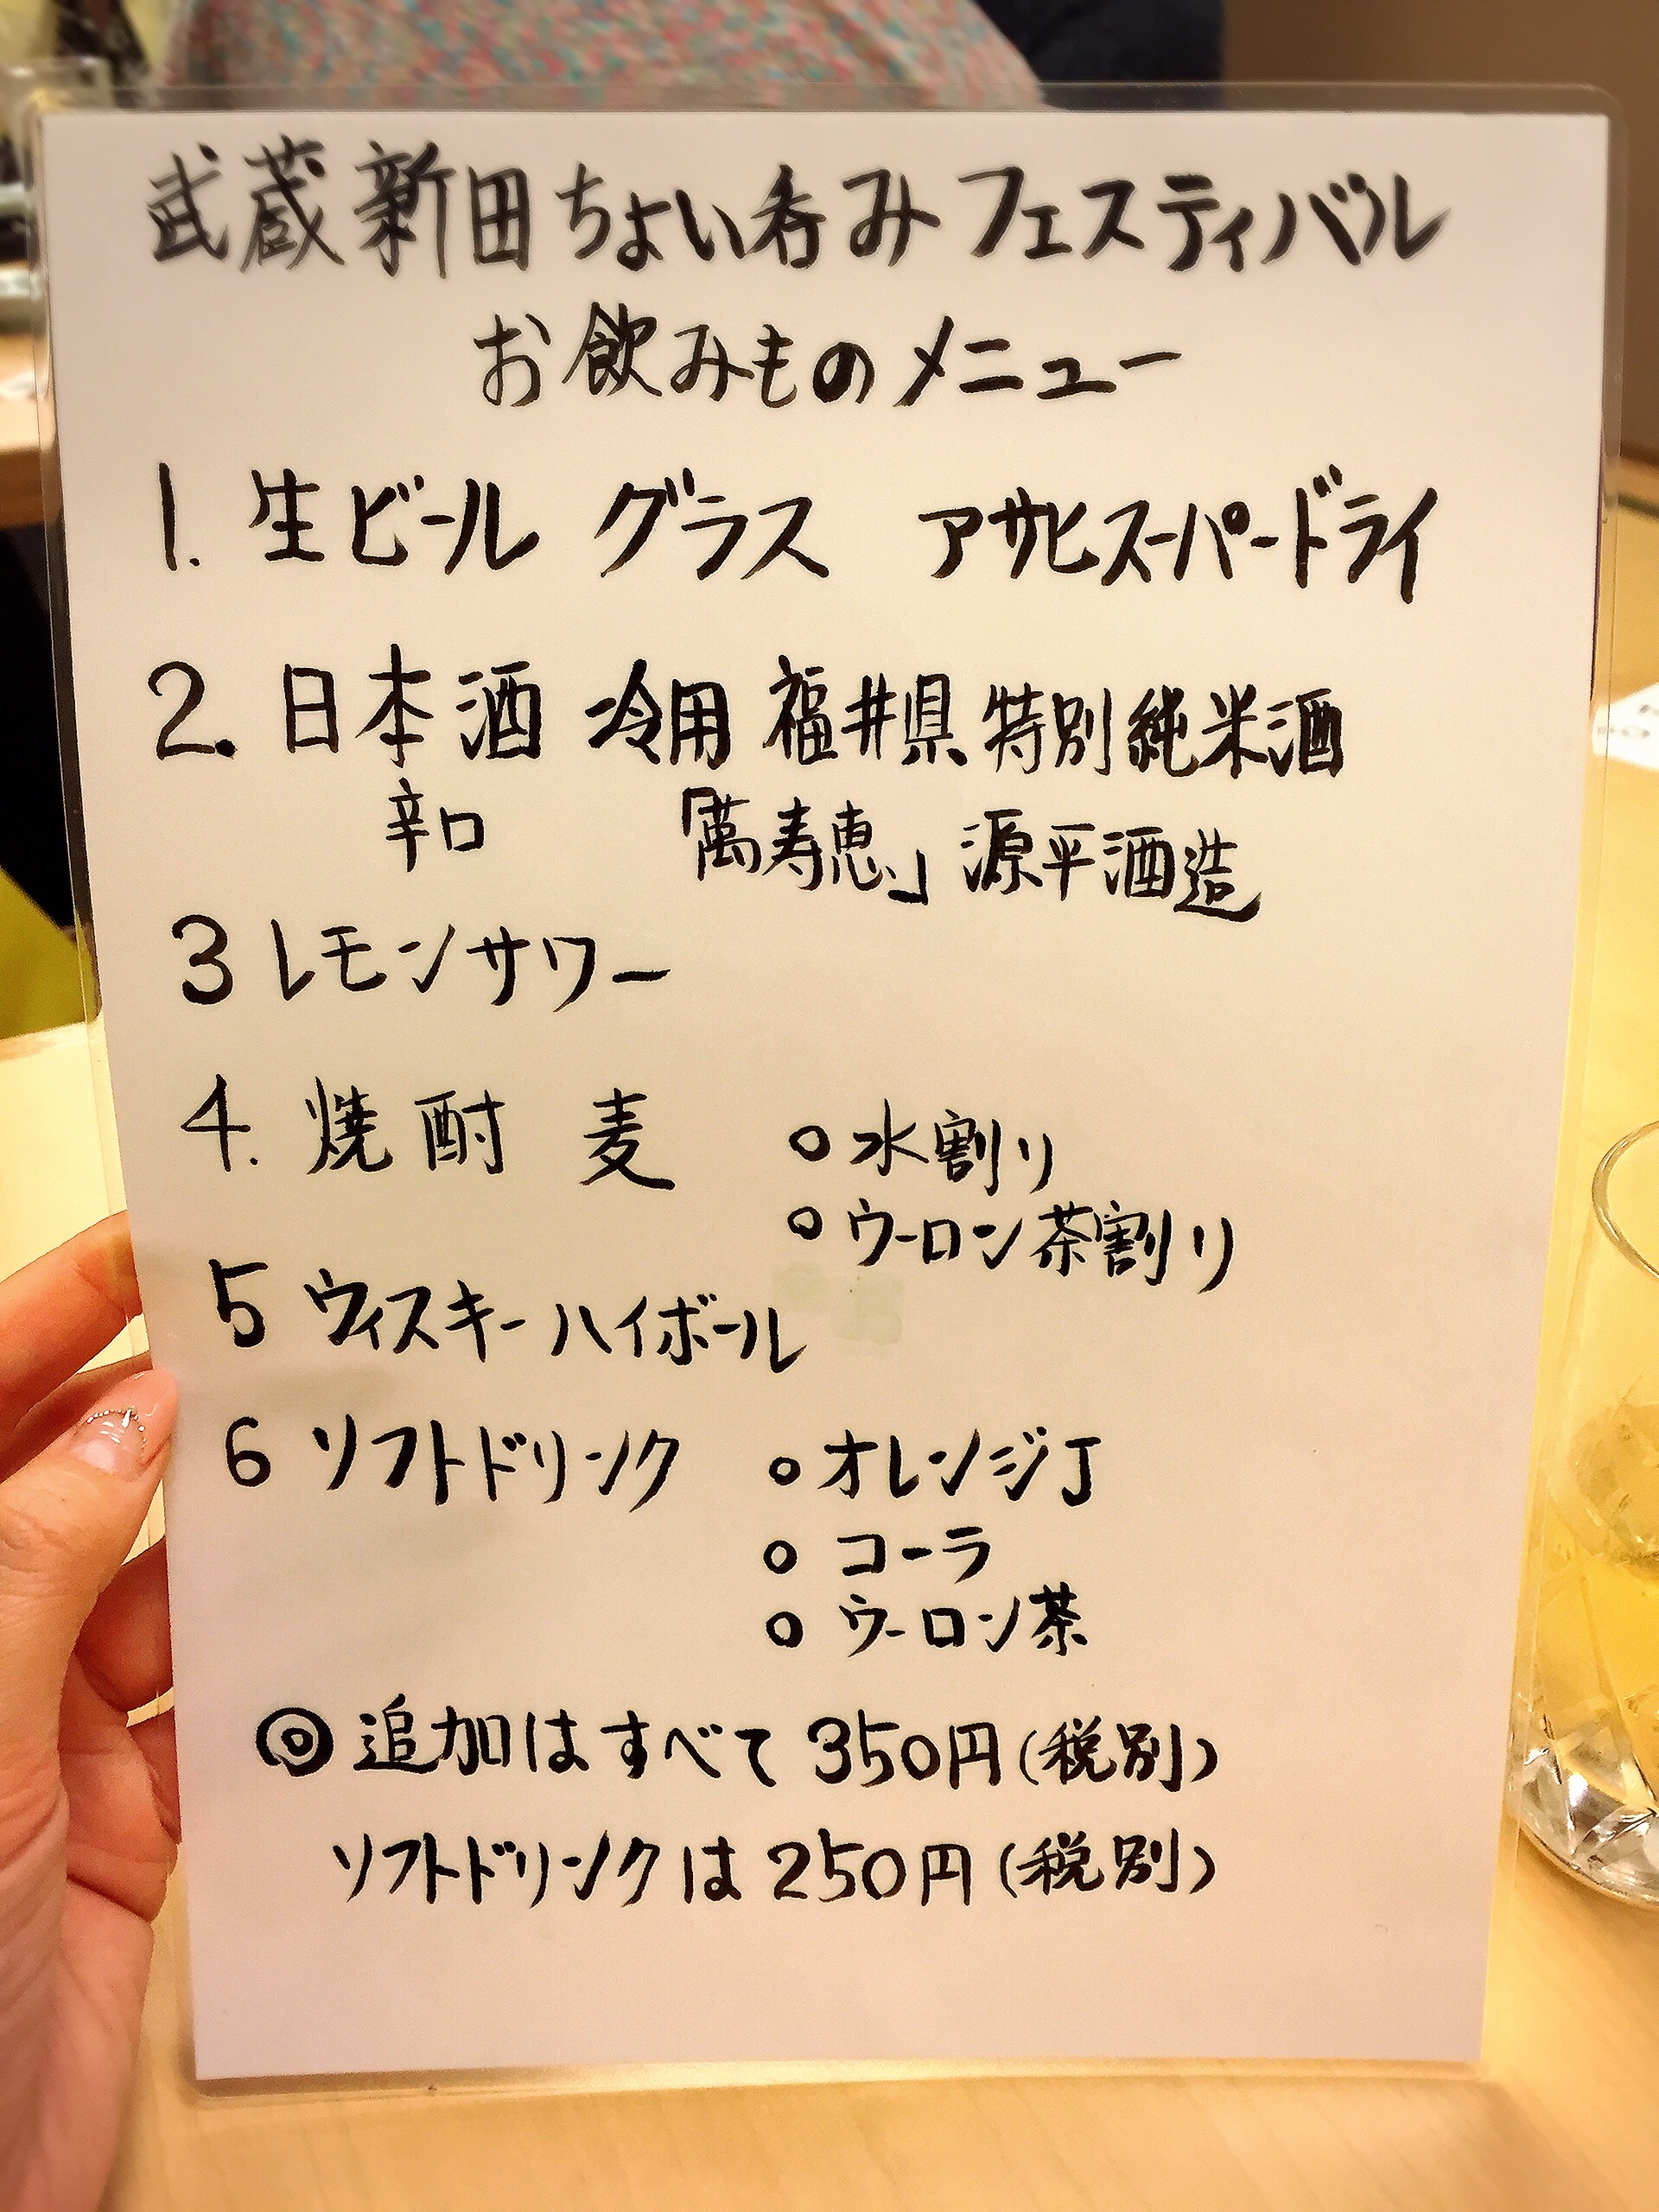 武蔵新田ちょい呑みフェスティバル
お飲みものメニュー
1. 生ビール グラス アサヒスーパードライ
2. 日本酒 冷用 福井県 特別純米酒
辛口 「萬寿恵」 源平酒造
3 レモンサワー
4. 焼酎 麦 ○水割り
○ウーロン茶割り
5 ウィスキーハイボール
6 ソフトドリンク ○オレンジJ
○ コーラ
○ ウーロン茶
◎追加はすべて350円(税別)
ソフトドリンクは250円(税別)